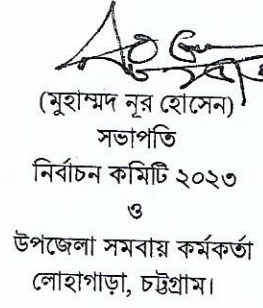 (মুহাম্মদ নূর হোসেন)
সভাপতি
নির্বাচন কমিটি ২০২৩
ও
উপজেলা সমবায় কর্মকর্তা
লোহাগাড়া, চট্টগ্রাম।